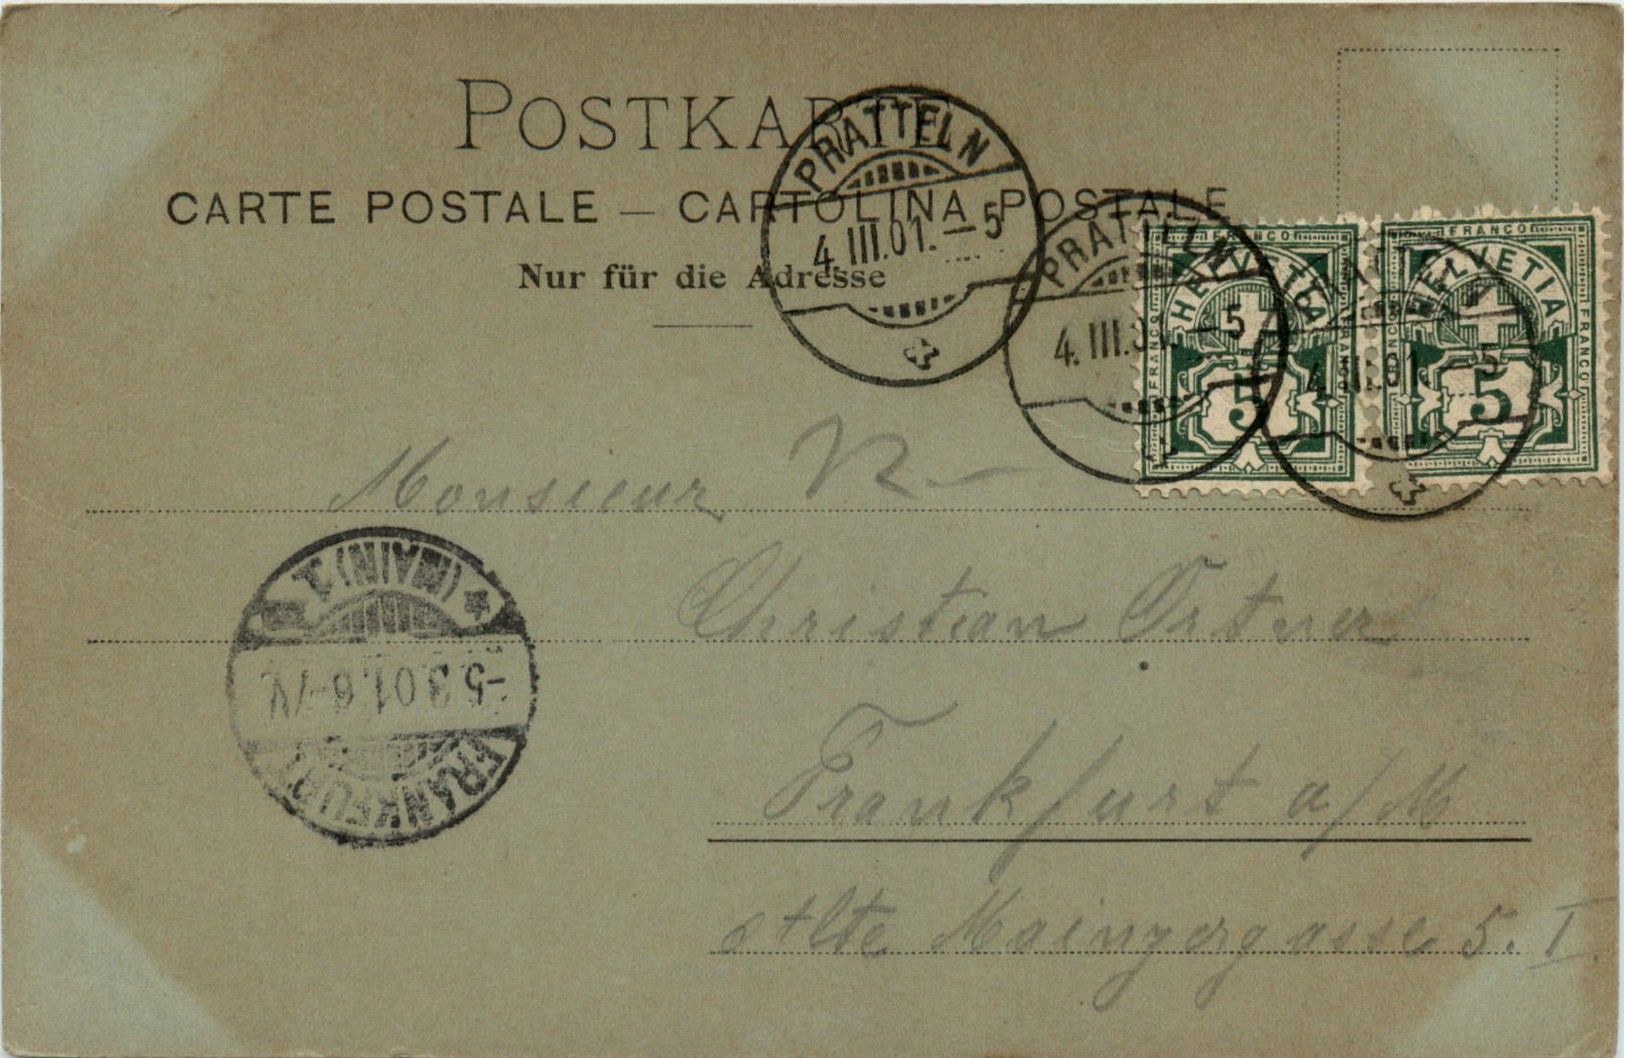 POSTKARTE
CARTE POSTALE — CARTOLINA POSTALE
Nur für die Adresse
PRATTELN
4.III.01.–5
PRATTELN
4.III.01.–5
4.III.01.–5
FRANCO
HELVETIA
FRANCO
FRANCO
5
FRANCO
HELVETIA
FRANCO
FRANCO
5
Monsieur
Christian Ortner
Frankfurt a/M
Alte Mainzergasse 5. I.
FRANKFURT
-5.3.01.6-7V.
* (MAIN) 1 *